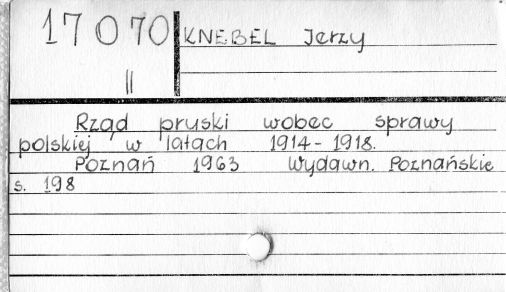 17 070
KNEBEL Jerzy
II
Rząd pruski wobec sprawy
polskiej w latach 1914-1918.
Poznań 1963 Wydawn. Poznańskie
s. 198